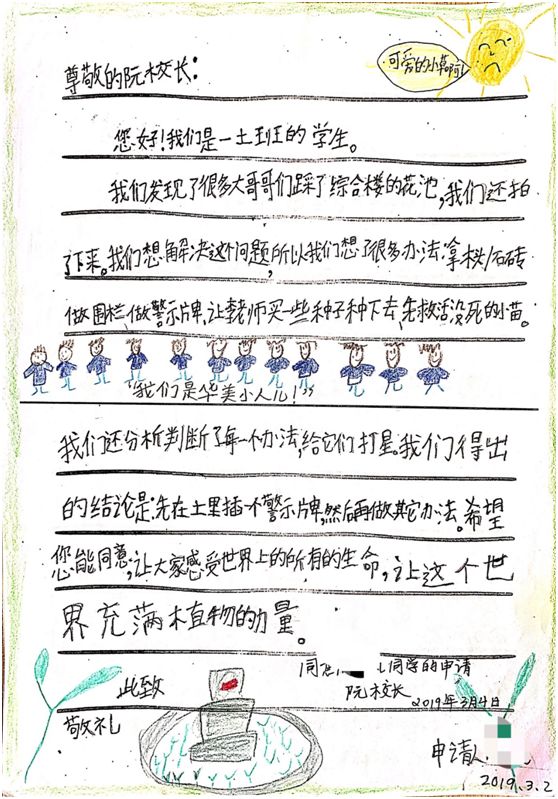 可爱的小草啊!
尊敬的阮校长:
您好!我们是一土班的学生。
我们发现了很多大哥哥们踩了综合楼的花池,我们还拍
了下来。我们想解决这个问题,所以我们想了很多办法:拿木头/石砖
做围栏,做警示牌,让老师买一些种子种下去,先救活没死的小苗。
“我们是华美小人儿!”
我们还分析判断了每一个办法,给它们打星。我们得出
的结论是:先在土里插一个警示牌,然后再做其它办法。希望
您能同意,让大家感受世界上的所有的生命,让这个世
界充满植物的力量。
同意,同学的申请
此致
阮校长
2019年3月4日
敬礼
申请人
2019.3.2